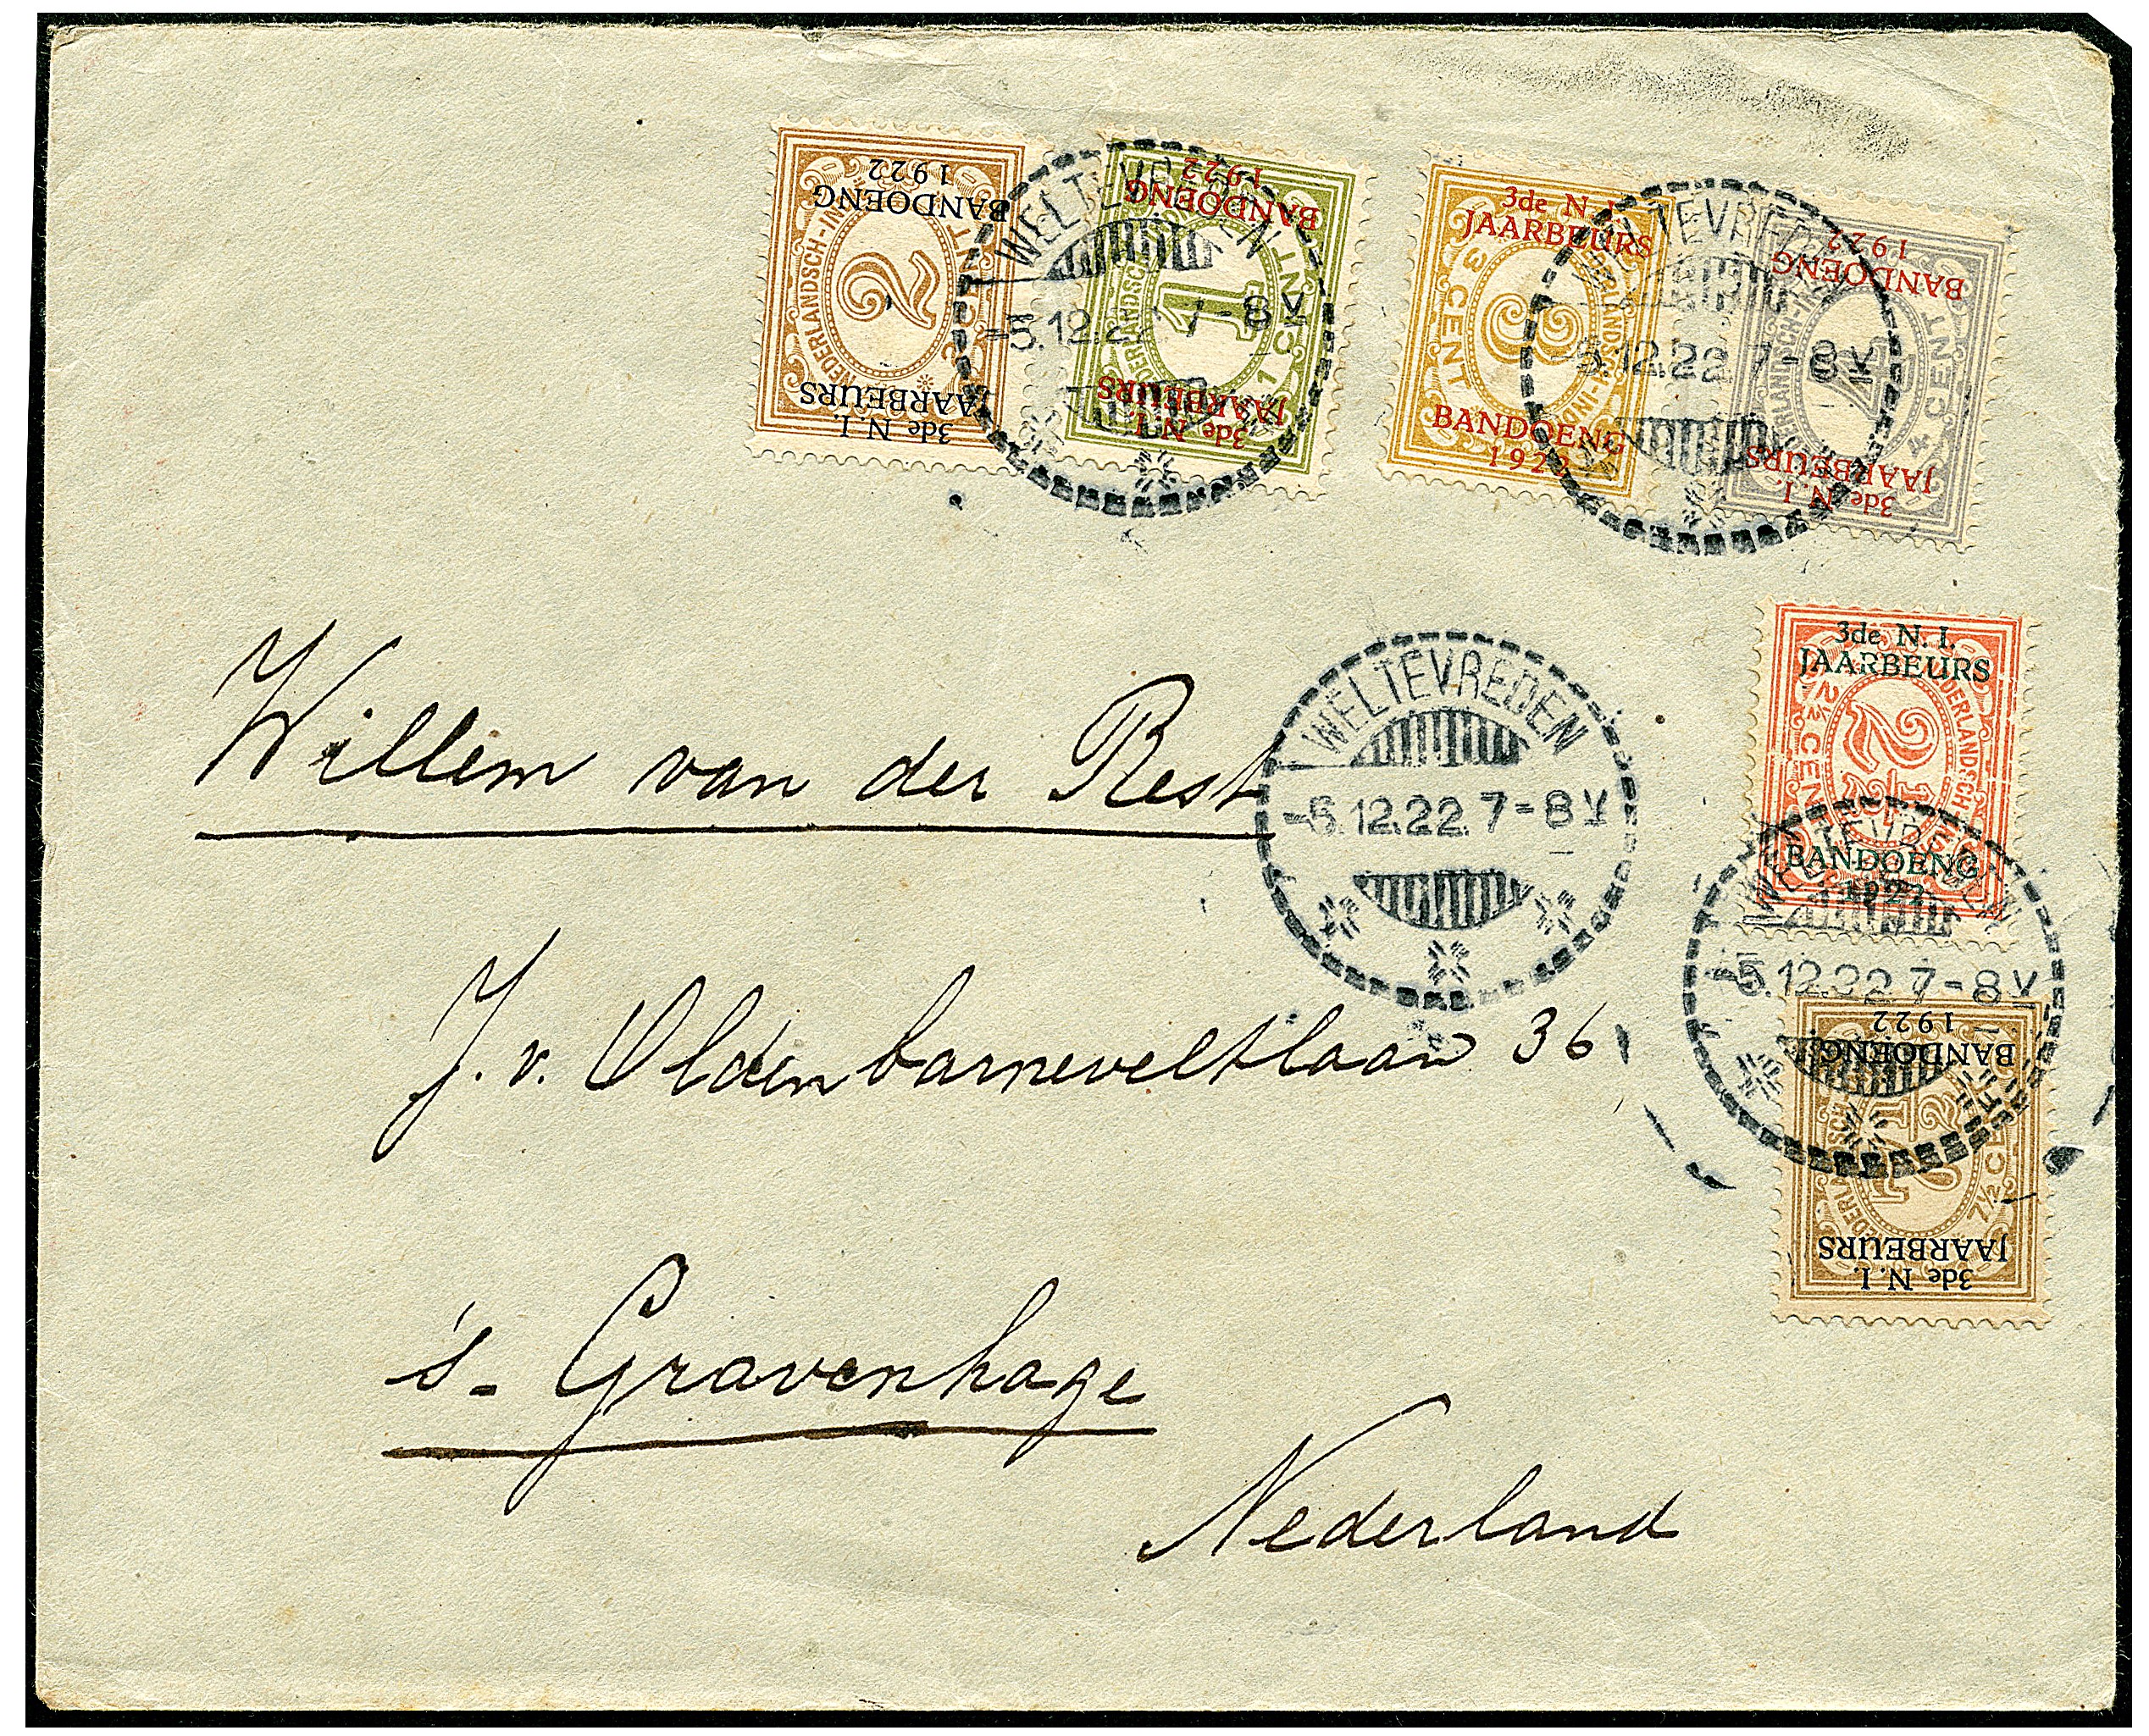 1922
BANDOENG
NEDERLANDSCH-IN
2
2 CENT
JAARBEURS
3de N. I.
1922
BANDOENG
1
1 CENT
JAARBEURS
3de N. I.
3de N. I.
JAARBEURS
3
3 CENT
BANDOENG
1922
1922
BANDOENG
4
4 CENT
JAARBEURS
3de N. I.
WELTEVREDEN
-5.12.22. 7-8 V
WELTEVREDEN
-5.12.22 7-8 V
3de N. I.
JAARBEURS
NEDERLANDSCH
2½
2½ CENT
BANDOENG
1922
WELTEVREDEN
-5.12.22. 7-8 V
WELTEVREDEN
-5.12.22 7-8 V
1922
BANDOENG
7½
7½ CE
JAARBEURS
3de N. I.
Willem van der Rest
J. v. Oldenbarneveltlaan 36
's-Gravenhage
Nederland